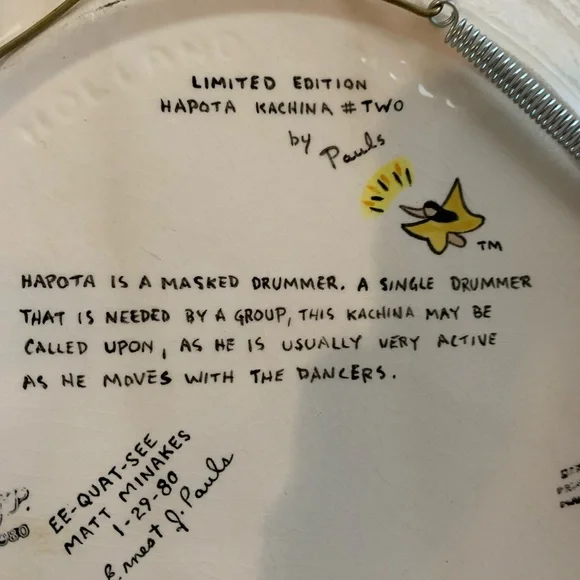 LIMITED EDITION
HAPOTA KACHINA #TWO
by Pauls
TM
HAPOTA IS A MASKED DRUMMER. A SINGLE DRUMMER
THAT IS NEEDED BY A GROUP, THIS KACHINA MAY BE
CALLED UPON, AS HE IS USUALLY VERY ACTIVE
AS HE MOVES WITH THE DANCERS.
EE-QUAT-SEE
MATT MINAKES
1-29-80
Ernest J Pauls